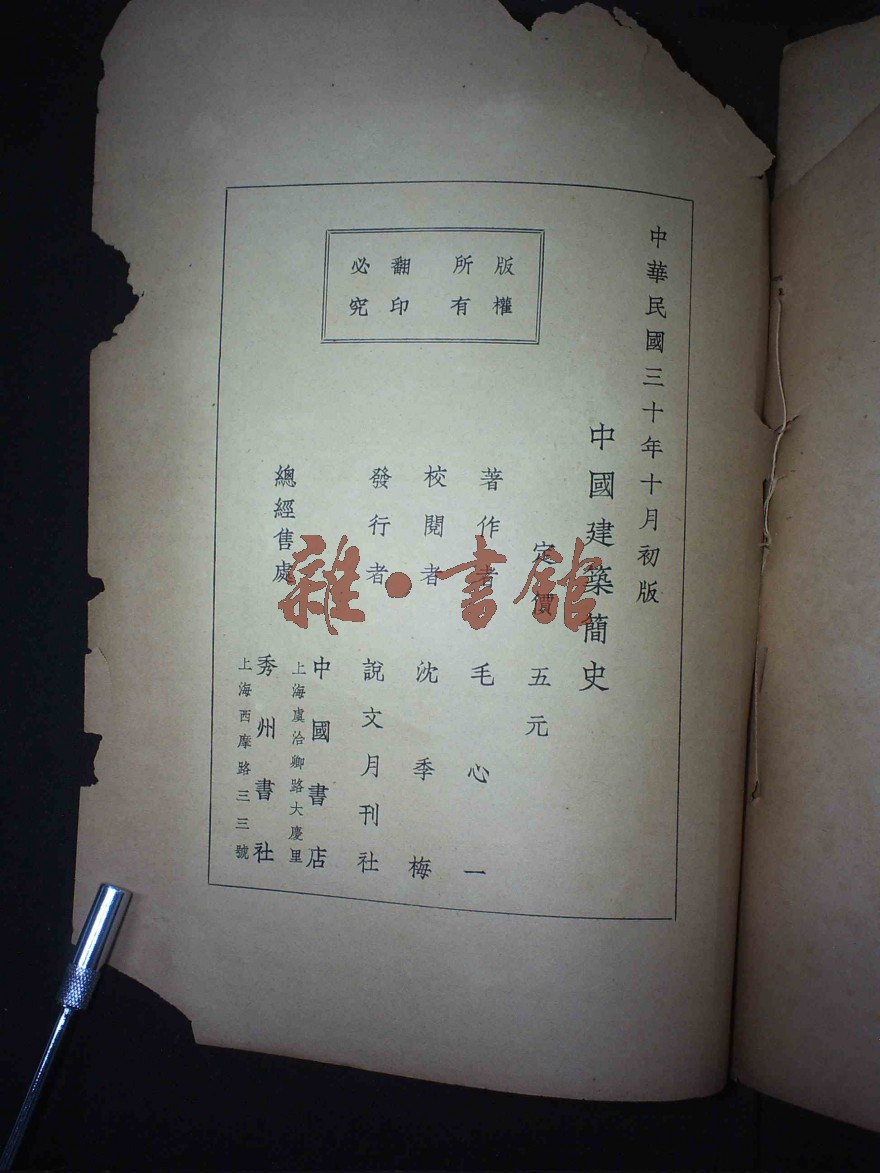 中華民國三十年十月初版
中國建築簡史
定價 五元
著作者 毛心一
校閱者 沈季梅
發行者 說文月刊社
總經售處
中國書店
上海虞洽卿路大慶里
秀州書社
上海西摩路三三號
版權
所有
翻印
必究
雜·書館